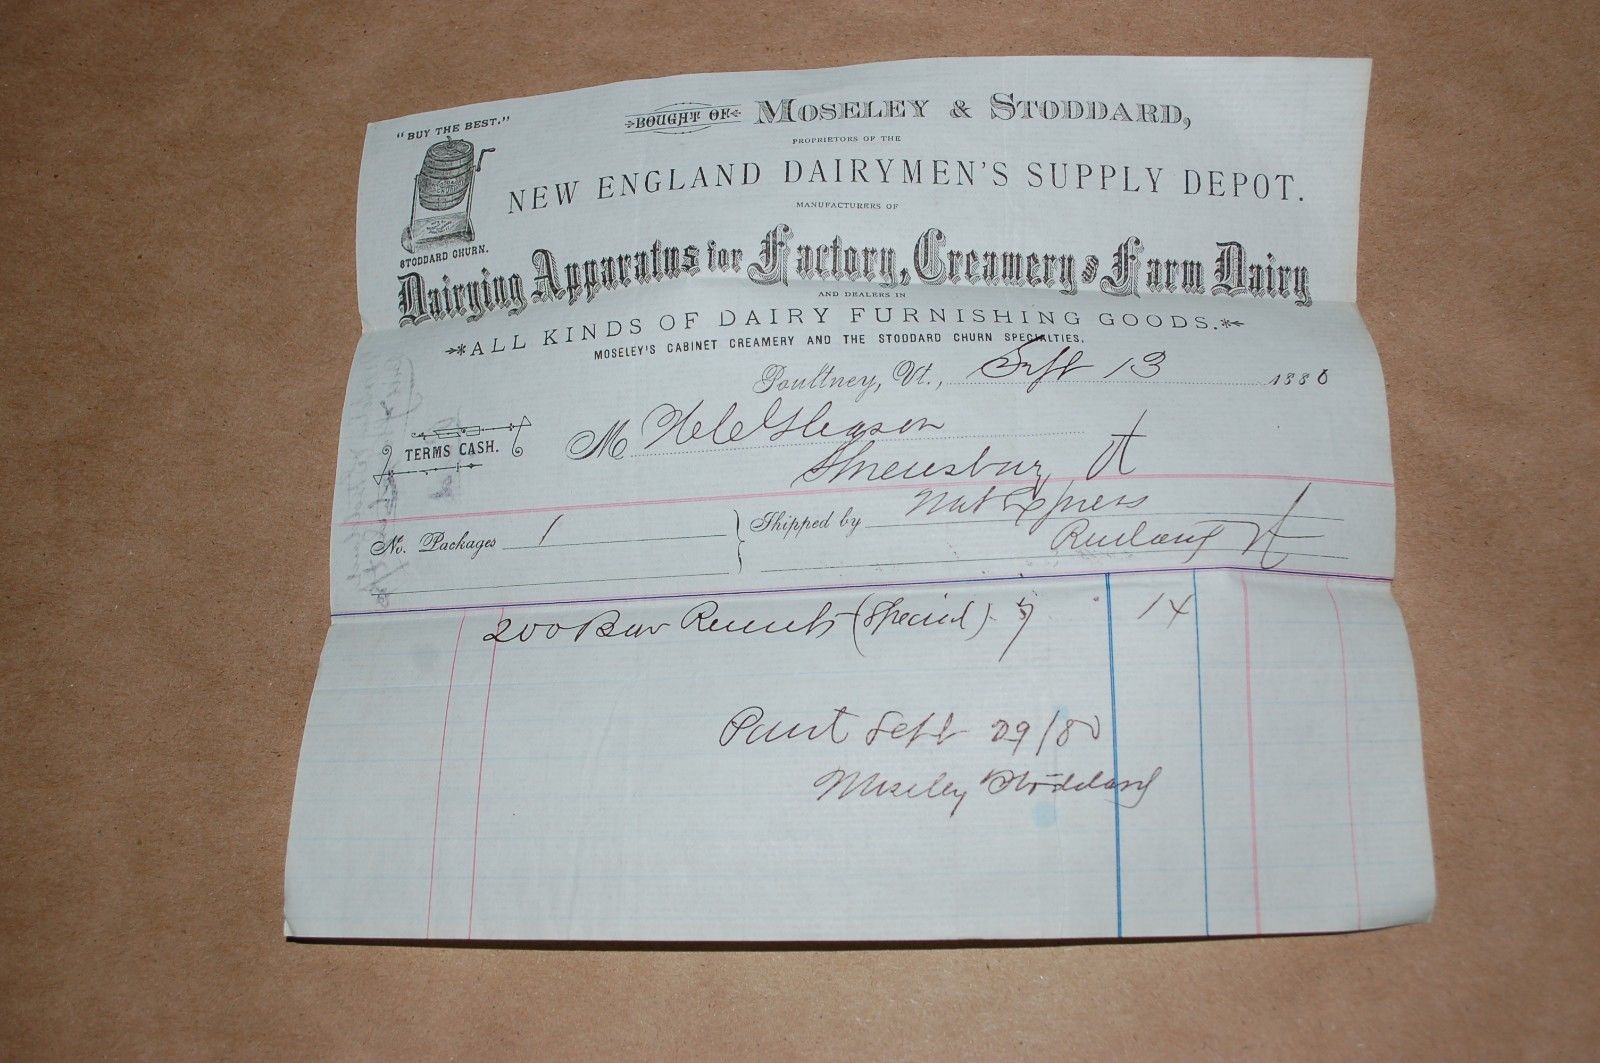 "BUY THE BEST."
STODDARD CHURN.
BOUGHT OF MOSELEY & STODDARD,
PROPRIETORS OF THE
NEW ENGLAND DAIRYMEN'S SUPPLY DEPOT.
MANUFACTURERS OF
Dairying Apparatus for Factory, Creamery & Farm Dairy
AND DEALERS IN
ALL KINDS OF DAIRY FURNISHING GOODS.
MOSELEY'S CABINET CREAMERY AND THE STODDARD CHURN SPECIALTIES.
Poultney, Vt., Sept 13 1880
TERMS CASH.
M Gleason
Shrewsbury Vt
No. Packages 1
Shipped by Nat Express
Rutland Vt
200 (Special) 7 14
Sept 29/80
Moseley Stoddard